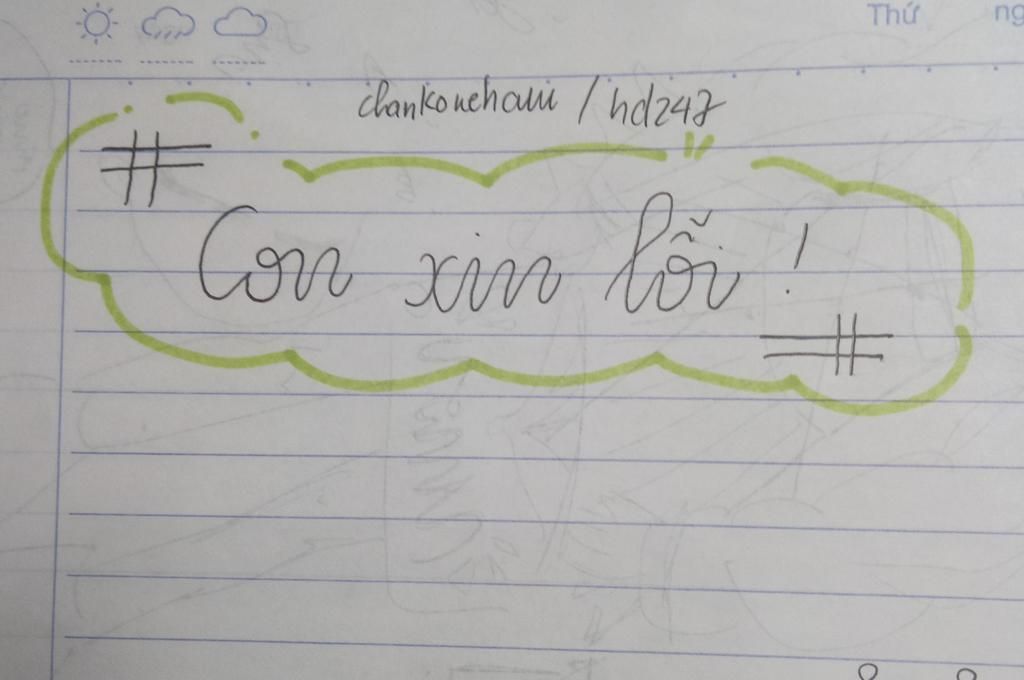 Thứ ng
chankoueham / hdz247
Con xin lỗi !